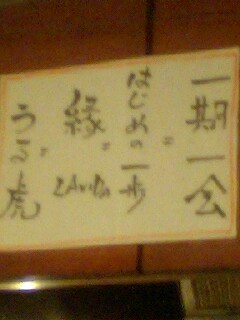 一期一会
=
はじめの一歩
=
縁
=
うる虎